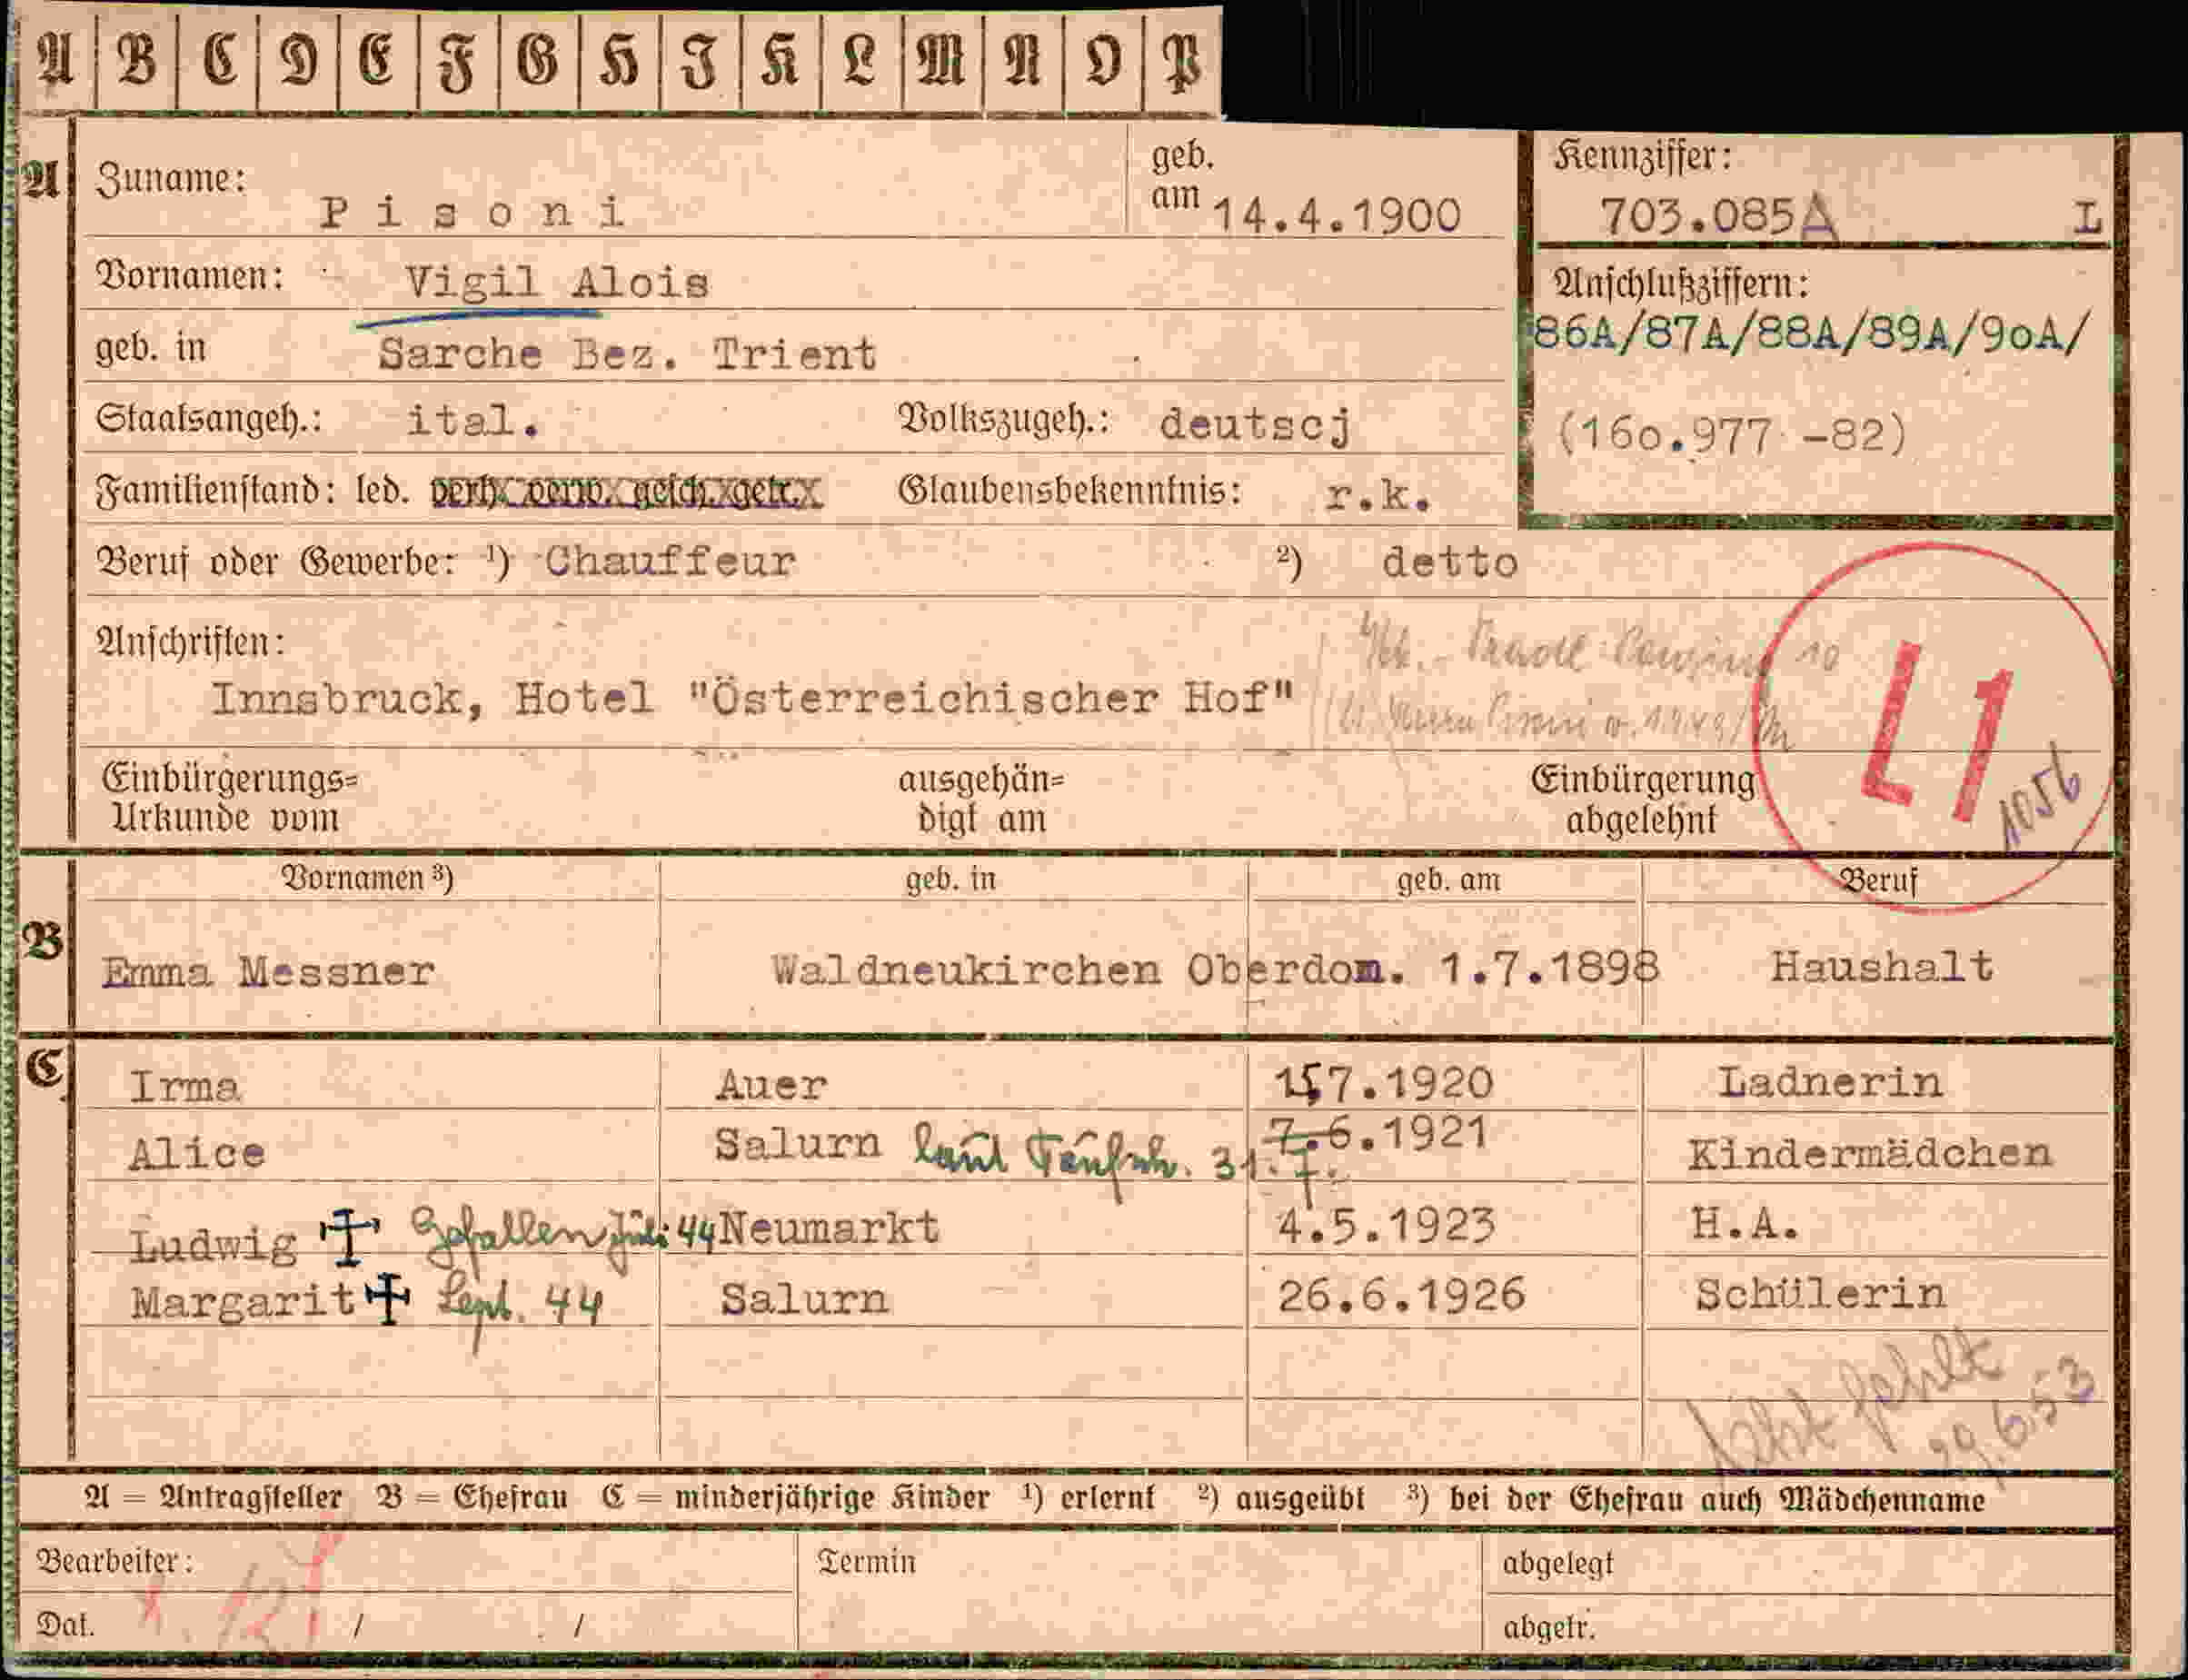 A B C D E F G H I K L M N O P
A Zuname: Pisoni geb. am 14.4.1900
Kennziffer: 703.085A L
Vornamen: Vigil Alois
Anschlußziffern:
86A/87A/88A/89A/90A/
geb. in Sarche Bez. Trient
Staatsangeh.: ital. Volkszugeh.: deutscj
(160.977 -82)
Familienstand: led. verh. verw. gesch. getr. Glaubensbekenntnis: r.k.
Beruf oder Gewerbe: ¹) Chauffeur ²) detto
Anschriften:
Innsbruck, Hotel "Österreichischer Hof"
10
L1
1056
Einbürgerungs=
Urkunde vom
ausgehän=
digt am
Einbürgerung
abgelehnt
Vornamen ³) geb. in geb. am Beruf
B Emma Messner Waldneukirchen Oberdon. 1.7.1898 Haushalt
C Irma Auer 15.7.1920 Ladnerin
Alice Salurn laut Taufsch. 31.7. 7.6.1921 Kindermädchen
Ludwig Gefallen Juli 44 Neumarkt 4.5.1923 H.A.
Margarit Sept. 44 Salurn 26.6.1926 Schülerin
Akt fehlt
29.6.53
A = Antragsteller B = Ehefrau C = minderjährige Kinder ¹) erlernt ²) ausgeübt ³) bei der Ehefrau auch Mädchenname
Bearbeiter: Termin abgelegt
Dat. / / abgetr.